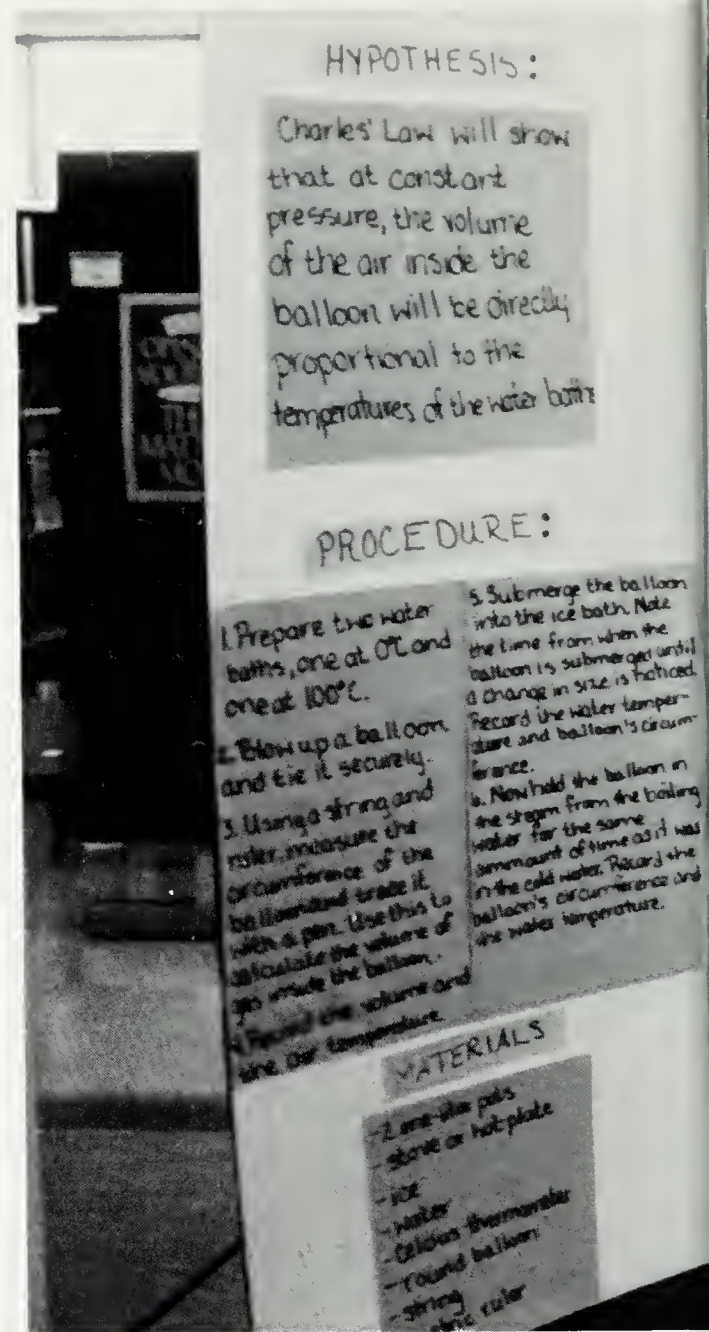 HYPOTHESIS:
Charles' Law will show
that at constant
pressure, the volume
of the air inside the
balloon will be directly
proportional to the
temperatures of the water baths
PROCEDURE:
1. Prepare two water
baths, one at 0°C and
one at 100°C.
2. Blow up a balloon
and tie it securely.
3. Using a string and
ruler, measure the
circumference of the
balloon and trace it
with a pen. Use this to
calculate the volume of
gas inside the balloon.
4. Record the volume and
the air temperature.
5. Submerge the balloon
into the ice bath. Note
the time from when the
balloon is submerged until
a change in size is noticed.
Record the water temper-
ature and balloon's circum-
ference.
6. Now hold the balloon in
the steam from the boiling
water for the same
ammount of time as it was
in the cold water. Record the
balloon's circumference and
the water temperature.
MATERIALS
- 2 one-liter pots
- stove or hot-plate
- ice
- water
- Celsius thermometer
- round balloon
- string
ruler